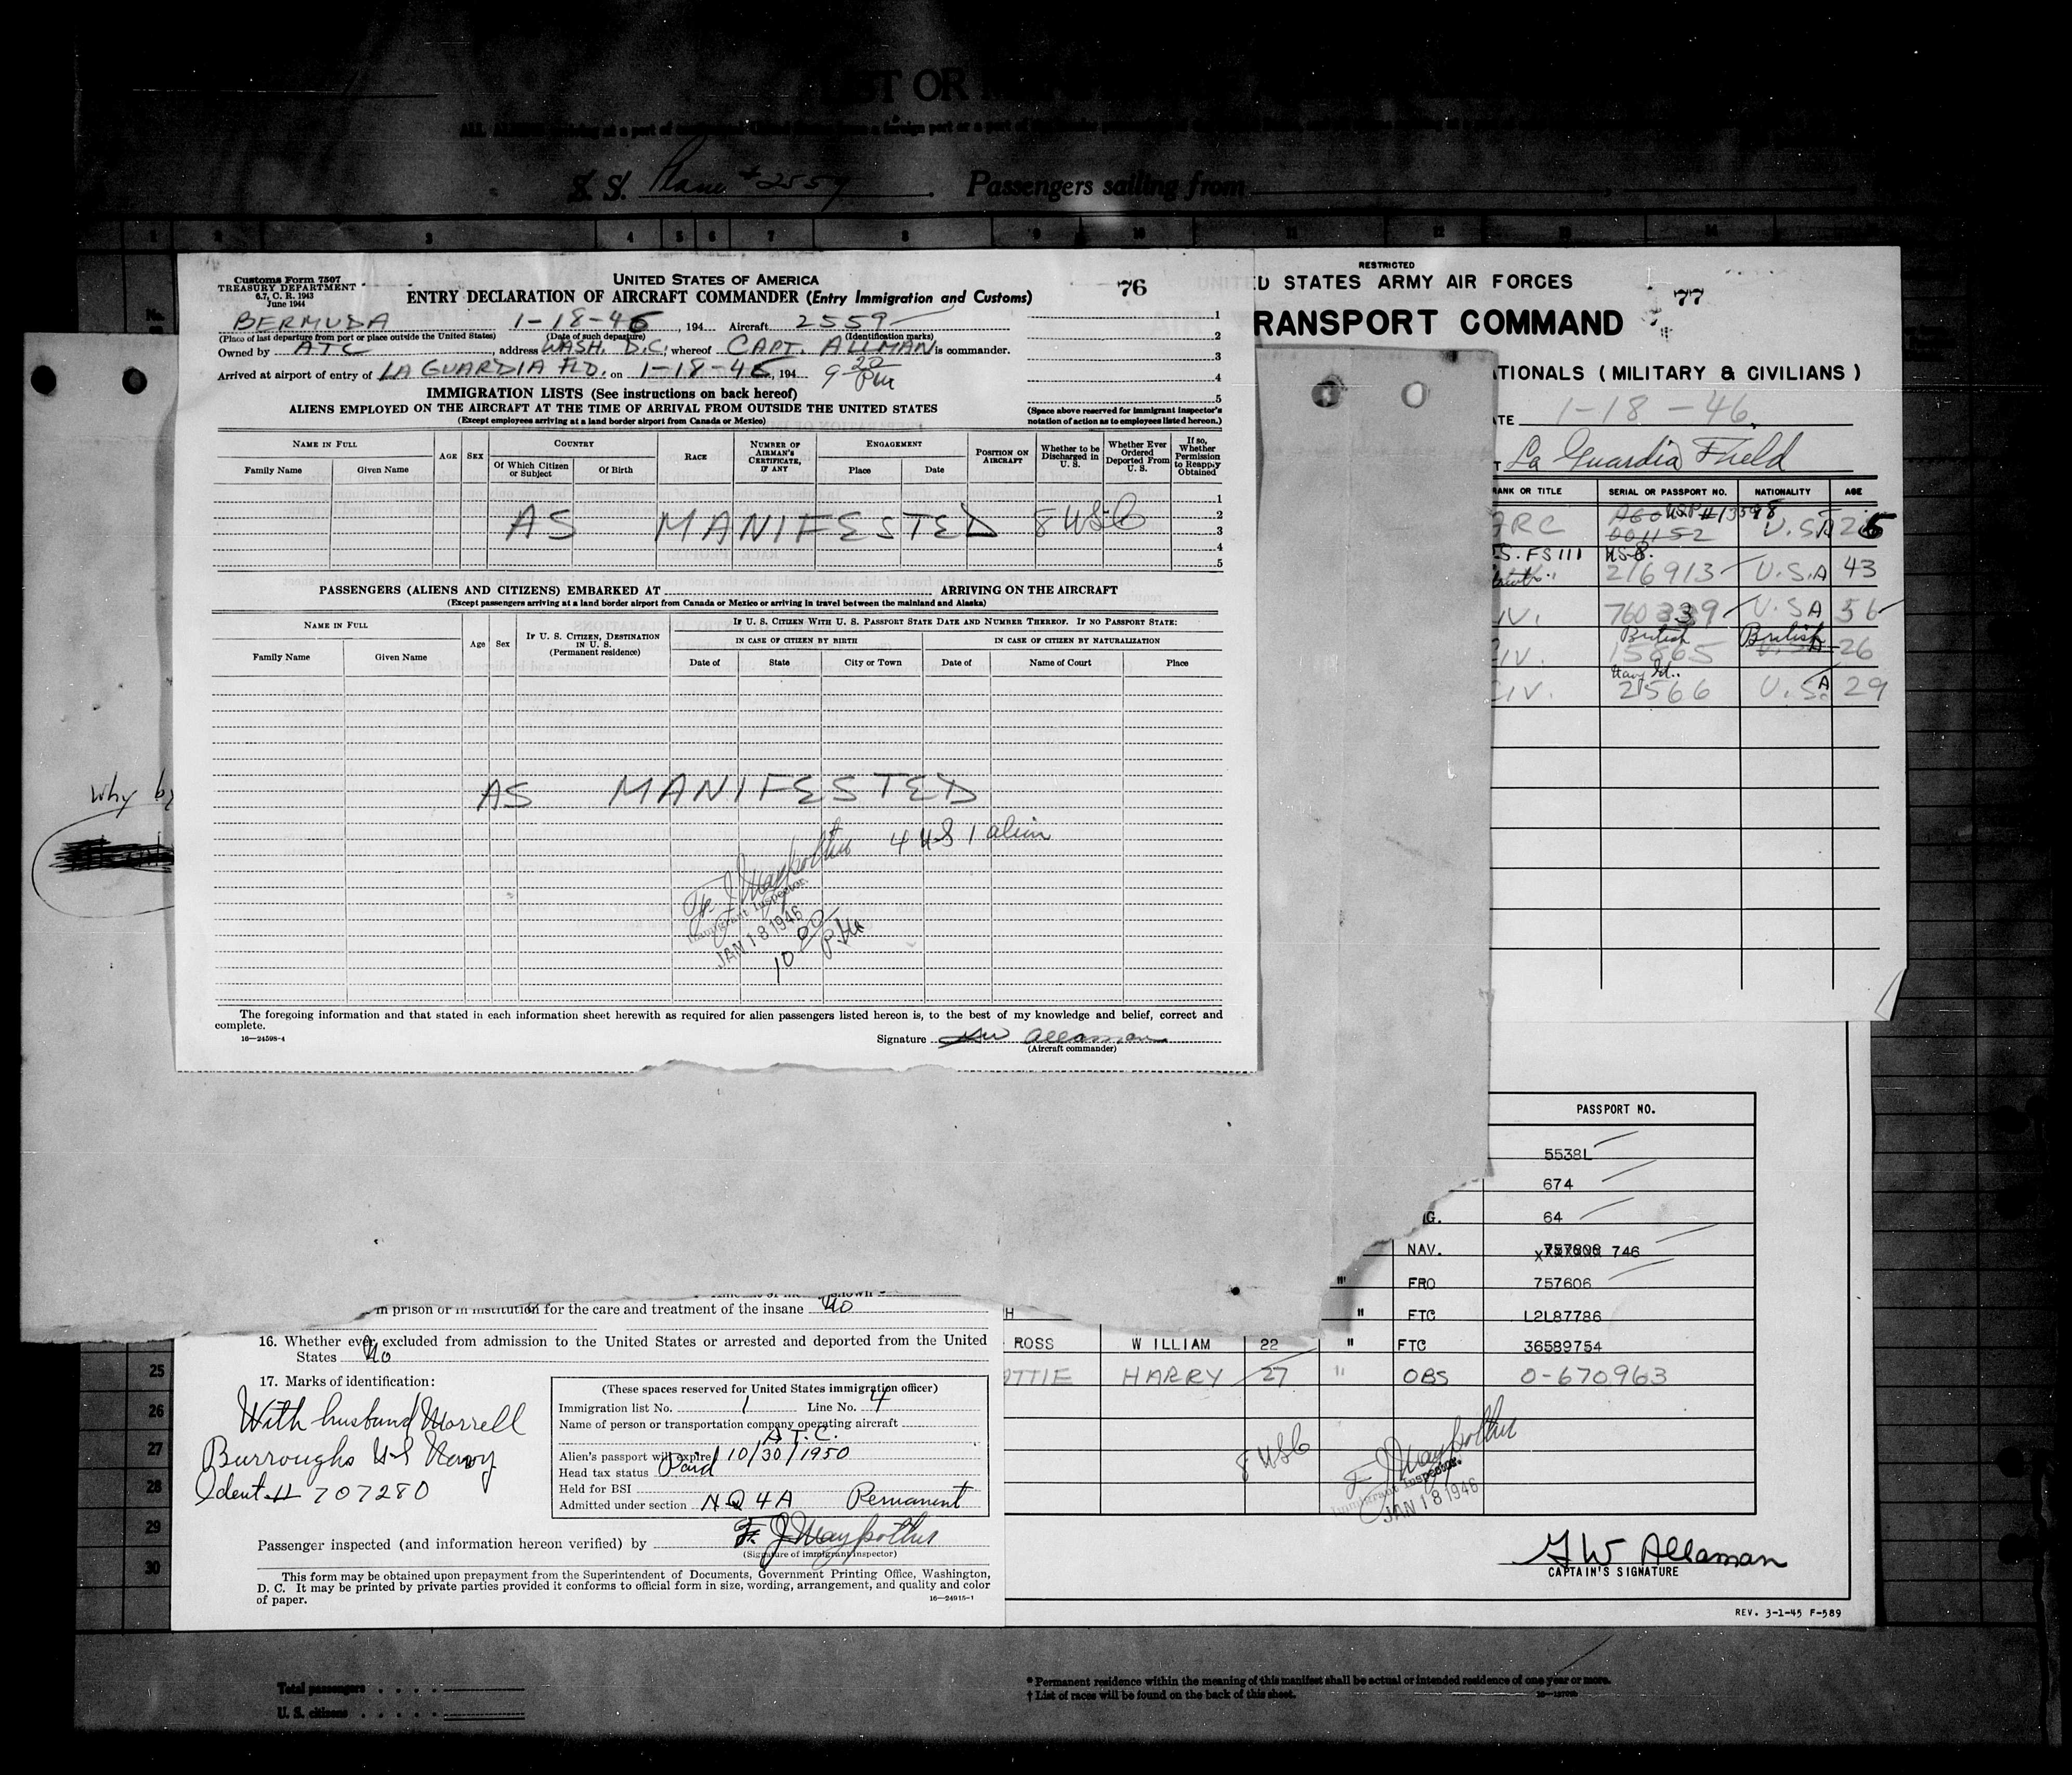 LIST OR
S. S. Plane #2559 Passengers sailing from
1 2 3 4 5 6 7 8 9 10 11 12 13 14
Customs Form 7507
TREASURY DEPARTMENT
6.7, C. R. 1943
June 1944
UNITED STATES OF AMERICA
ENTRY DECLARATION OF AIRCRAFT COMMANDER (Entry Immigration and Customs)
76
BERMUDA 1-18-46, 194 Aircraft 2559
(Place of last departure from port or place outside the United States) (Date of such departure) (Identification marks)
Owned by ATC, address WASH. D.C., whereof CAPT. ALLMAN is commander.
Arrived at airport of entry of LA GUARDIA FLD. on 1-18-46, 194 9 20 PM
1
2
3
4
5
(Space above reserved for immigrant inspector's notation of action as to employees listed hereon.)
IMMIGRATION LISTS (See instructions on back hereof)
ALIENS EMPLOYED ON THE AIRCRAFT AT THE TIME OF ARRIVAL FROM OUTSIDE THE UNITED STATES
(Except employees arriving at a land border airport from Canada or Mexico)
NAME IN FULL
Family Name Given Name
AGE SEX
COUNTRY
Of Which Citizen or Subject Of Birth
RACE
NUMBER OF AIRMAN'S CERTIFICATE, IF ANY
ENGAGEMENT
Place Date
POSITION ON AIRCRAFT
Whether to be Discharged in U. S.
Whether Ever Ordered Deported From U. S.
If so, Whether Permission to Reapply Obtained
1
2
3
4
5
AS MANIFESTED 8 USC
PASSENGERS (ALIENS AND CITIZENS) EMBARKED AT ARRIVING ON THE AIRCRAFT
(Except passengers arriving at a land border airport from Canada or Mexico or arriving in travel between the mainland and Alaska)
NAME IN FULL
Family Name Given Name
Age Sex
IF U. S. CITIZEN, DESTINATION IN U. S.
(Permanent residence)
IF U. S. CITIZEN WITH U. S. PASSPORT STATE DATE AND NUMBER THEREOF. IF NO PASSPORT STATE:
IN CASE OF CITIZEN BY BIRTH IN CASE OF CITIZEN BY NATURALIZATION
Date of State City or Town Date of Name of Court Place
AS MANIFESTED
4 US 1 alien
Immigrant Inspector.
JAN 18 1946
10 00 P.M.
The foregoing information and that stated in each information sheet herewith as required for alien passengers listed hereon is, to the best of my knowledge and belief, correct and
complete.
16—24598-4
Signature GW Allaman
(Aircraft commander)
RESTRICTED
D STATES ARMY AIR FORCES
77
RANSPORT COMMAND
TIONALS ( MILITARY & CIVILIANS )
TE 1-18-46.
T La Guardia Field
RANK OR TITLE SERIAL OR PASSPORT NO. NATIONALITY AGE
ARC 001152 U.S.A 26
S. FS III 216913 U.S.A 43
IV. 760339 U.S.A 56
British British
CIV. 15865 U.S.A 26
Navy Id..
CIV. 21566 U.S.A 29
Why by
PASSPORT NO.
5538L
674
G. 64
NAV. 746
" FRO 757606
H " FTC L2L87786
ROSS WILLIAM 22 " FTC 36589754
TTIE HARRY 27 " OBS 0-670963
8 USC
Immigrant Inspector.
JAN 18 1946
GW Allaman
CAPTAIN'S SIGNATURE
REV. 3-1-45 F-589
in prison or in institution for the care and treatment of the insane No
16. Whether ever excluded from admission to the United States or arrested and deported from the United
States No
17. Marks of identification:
With husband Morrell
Burroughs US Navy
Ident # 707280
(These spaces reserved for United States immigration officer)
Immigration list No. 1 Line No. 4
Name of person or transportation company operating aircraft
A.T.C.
Alien's passport will expire 10/30/1950
Head tax status Paid
Held for BSI
Admitted under section NQ 4A Permanent
Passenger inspected (and information hereon verified) by
(Signature of immigrant inspector)
This form may be obtained upon prepayment from the Superintendent of Documents, Government Printing Office, Washington,
D. C. It may be printed by private parties provided it conforms to official form in size, wording, arrangement, and quality and color
of paper.
16—24915-1
25
26
27
28
29
30
Total passengers
U. S. citizens
* Permanent residence within the meaning of this manifest shall be actual or intended residence of one year or more.
† List of races will be found on the back of this sheet.